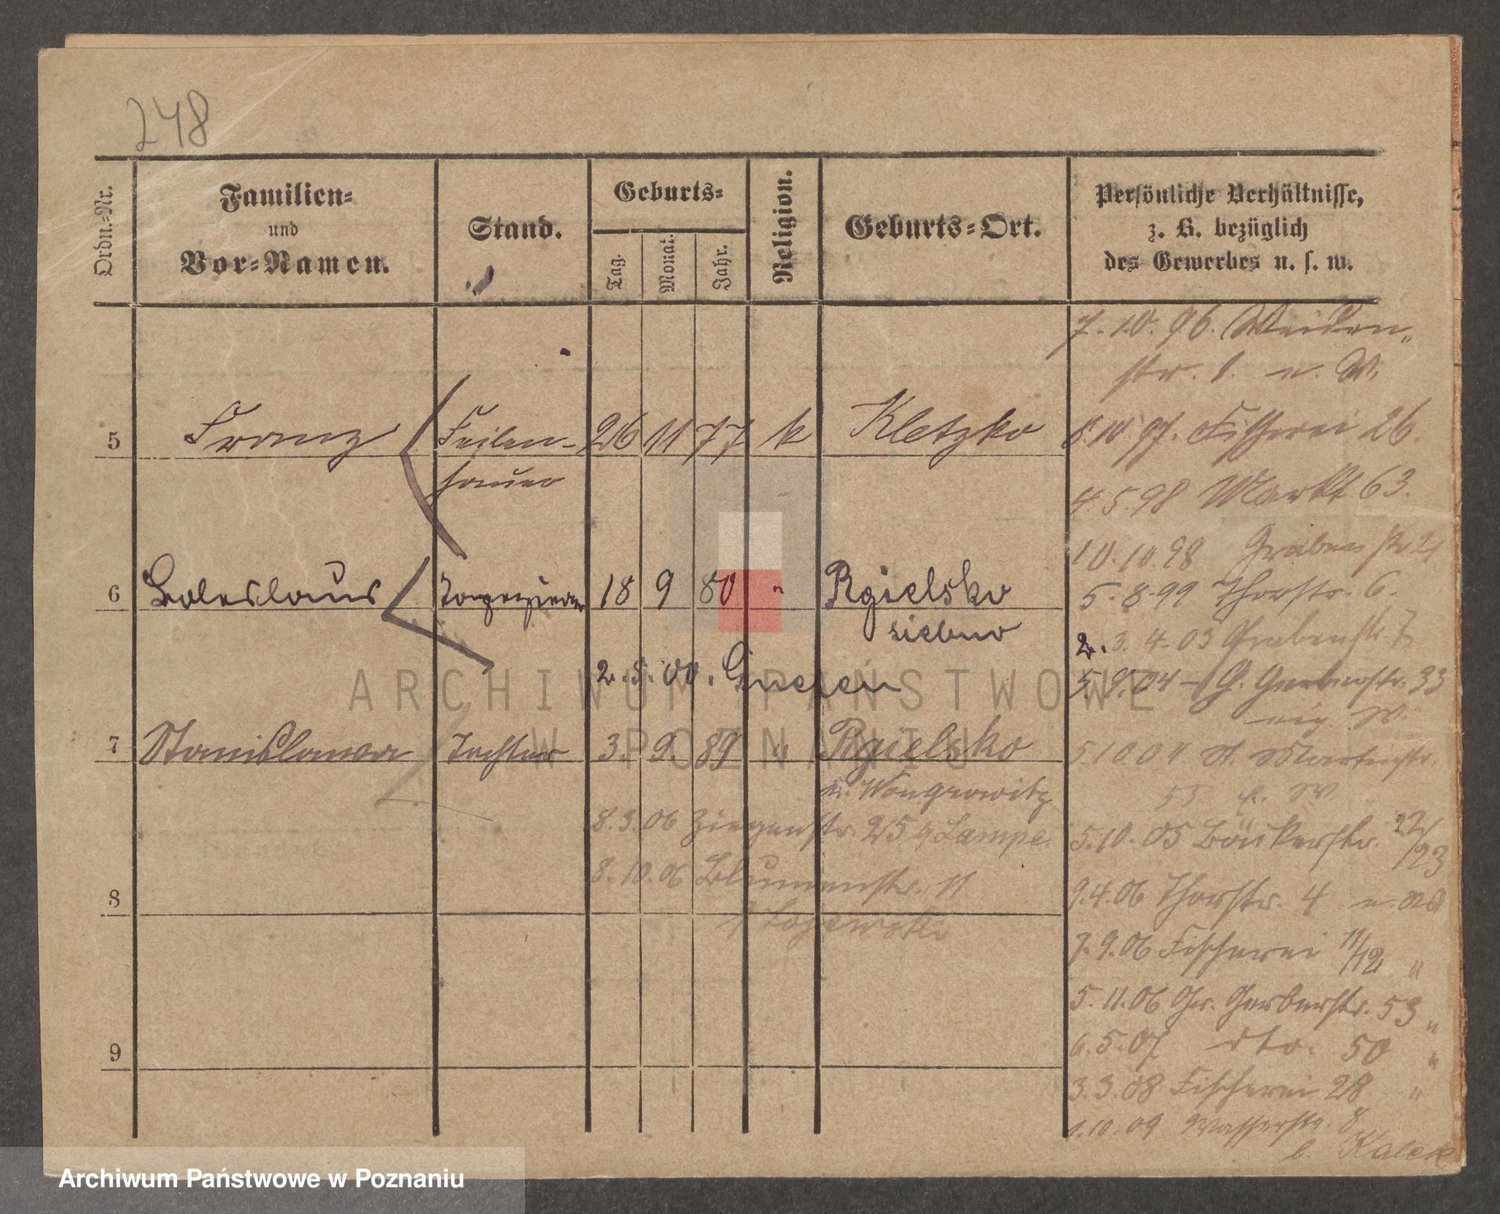 248
Ordn.-Nr.
Familien-
und
Vor-Namen.
Stand.
Geburts-
Tag.
Monat.
Jahr.
Religion.
Geburts-Ort.
Persönliche Verhältnisse,
z. B. bezüglich
des Gewerbes u. s. w.
7.10.96. Weiden-
str. 1. n. W.
5 Franz Feilen- 26 11 77 k Kletzko
hauer
8.10.97. Fischerei 26.
4.5.98 Markt 63.
10.10.98 Grabenstr 21
6 Boleslaus Tapezierer 18 9 80 " Rgielsko
5.8.99 Thorstr. 6.
2.5.00. Gnesen
3.4.03 Grabenstr. 7
5.9.04 G. Gerberstr. 33
7 Stanislawa Tochter 3. 9. 89 " Rgielsko
Kr. Wongrowitz
5.10.04 St. Martinstr.
55
8.3.06 Ziegenstr. 25 b/ Lampe
5.10.05 Bäckerstr. 22/23
8.10.06 Blumenstr. 11
8
9.4.06 Thorstr. 4
7.9.06 Fischerei 11/12 "
5.11.06 Gr. Gerberstr. 53 "
9
6.5.07 dto. 50 "
3.3.08 Fischerei 28 "
1.10.09 Wasserstr. 8
b. Kalek
ARCHIWUM PAŃSTWOWE
W POZNANIU
Archiwum Państwowe w Poznaniu